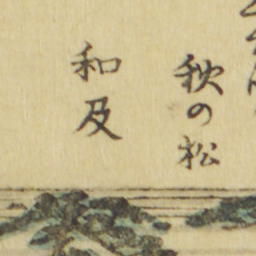 秋の松
和及